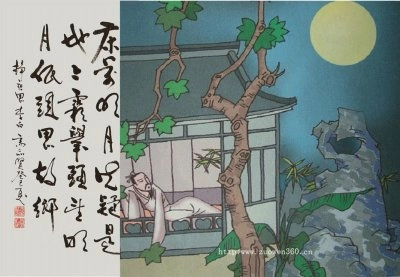 床前明月光疑是
地上霜舉頭望明
月低頭思故鄉
静夜思李白
zuowen360.cn